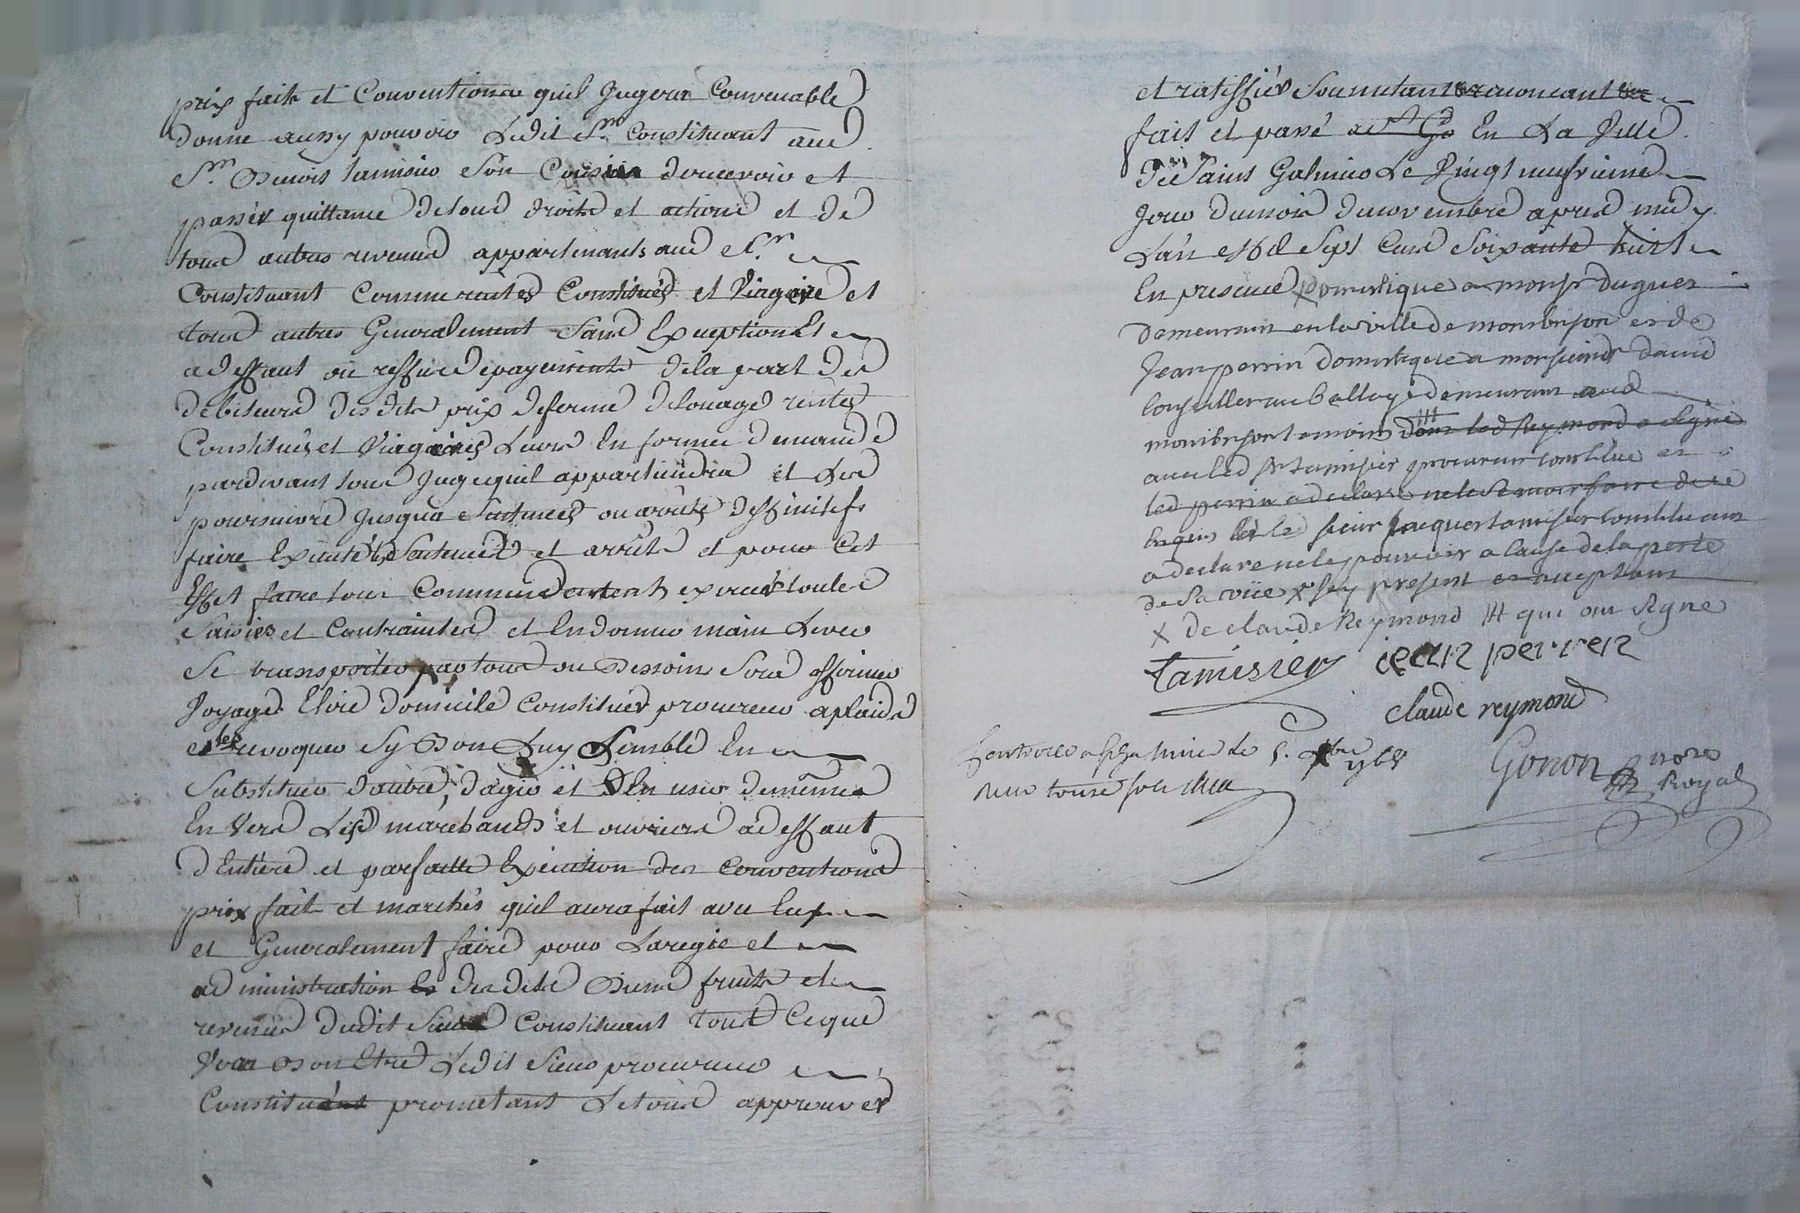 prix fait et Conventions quil Jugera Convenable
donne aussy pouvoir Ledit Sr. Constituant aud
Sr. Benois tamisier Son Cousin de recevoir et
passer quittance de tous droits et actions et de
tous autres revenus appartenants aud Sr.
Constituant Comme rentes Constitués et Viagere et
tous autres Generalement Sans Exception Et
a deffaut ou reffus de payements de la part des
debiteurs desdits prix de ferme de Louages rentes
Constitués et Viageres Leurs En former demande
pardevant tous Juge quil appartiendra et Les
poursuivre Jusqua Sentences ou arrets deffinitifs
faire Executé les Sentences et arrêts et pour Cet
Effet faire tous Commendements exercer toutes
Saisies et Contraintes et En donner main Levée
Se transporter par tout ou Bessoin Sera affirmer
Voyages Elire domicile Constituer procureur a plaids
et les revoquer Sy Bon Luy Semble En
Substituer d'autre, d'agir et D'En user de même
En Vers Lesd marchands et ouvriers a deffaut
d'Entiere et parfaitte Execution des Conventions
prix fait et marchés quil aura fait avec Eux
et Generalement faire pour La regie et
administration desdits Biens fruits et
revenus dudit Sieur Constituant tout Ce que
Vera Bon Etre Ledit Sieur procureur
Constitué prometant Le tout approuver
et ratiffier Soumetant renoncant
fait et passé En La Ville
De Saint Galmier Le Vingt neufvieme
Jour du mois de novembre apres midy
L'an Mil Sept Cens Soixante huit
En presence Domestique a monsr duguet
demeurant en la ville de monbrison et de
Jean perrin domestique a monsieur david
Conseiller au Ballage demeurant aud
monbrison temoins dont led Reymond a Signé
avec led Sr tamisier procureur constitué et
led perrin a declaré ne le Scavoir faire de ce
enquis et le Sieur Jacques tamisier constituant
a declaré ne le pouvoir a cause de la perte
de Sa vüe x Icy present et acceptant
X de claude Reymond ## qui ont Signé
tamisier jean perren
claude reymond
Gonon nore
Royal
Controlé a St Galmier le 5. Xbre 1768
Recu treize sols